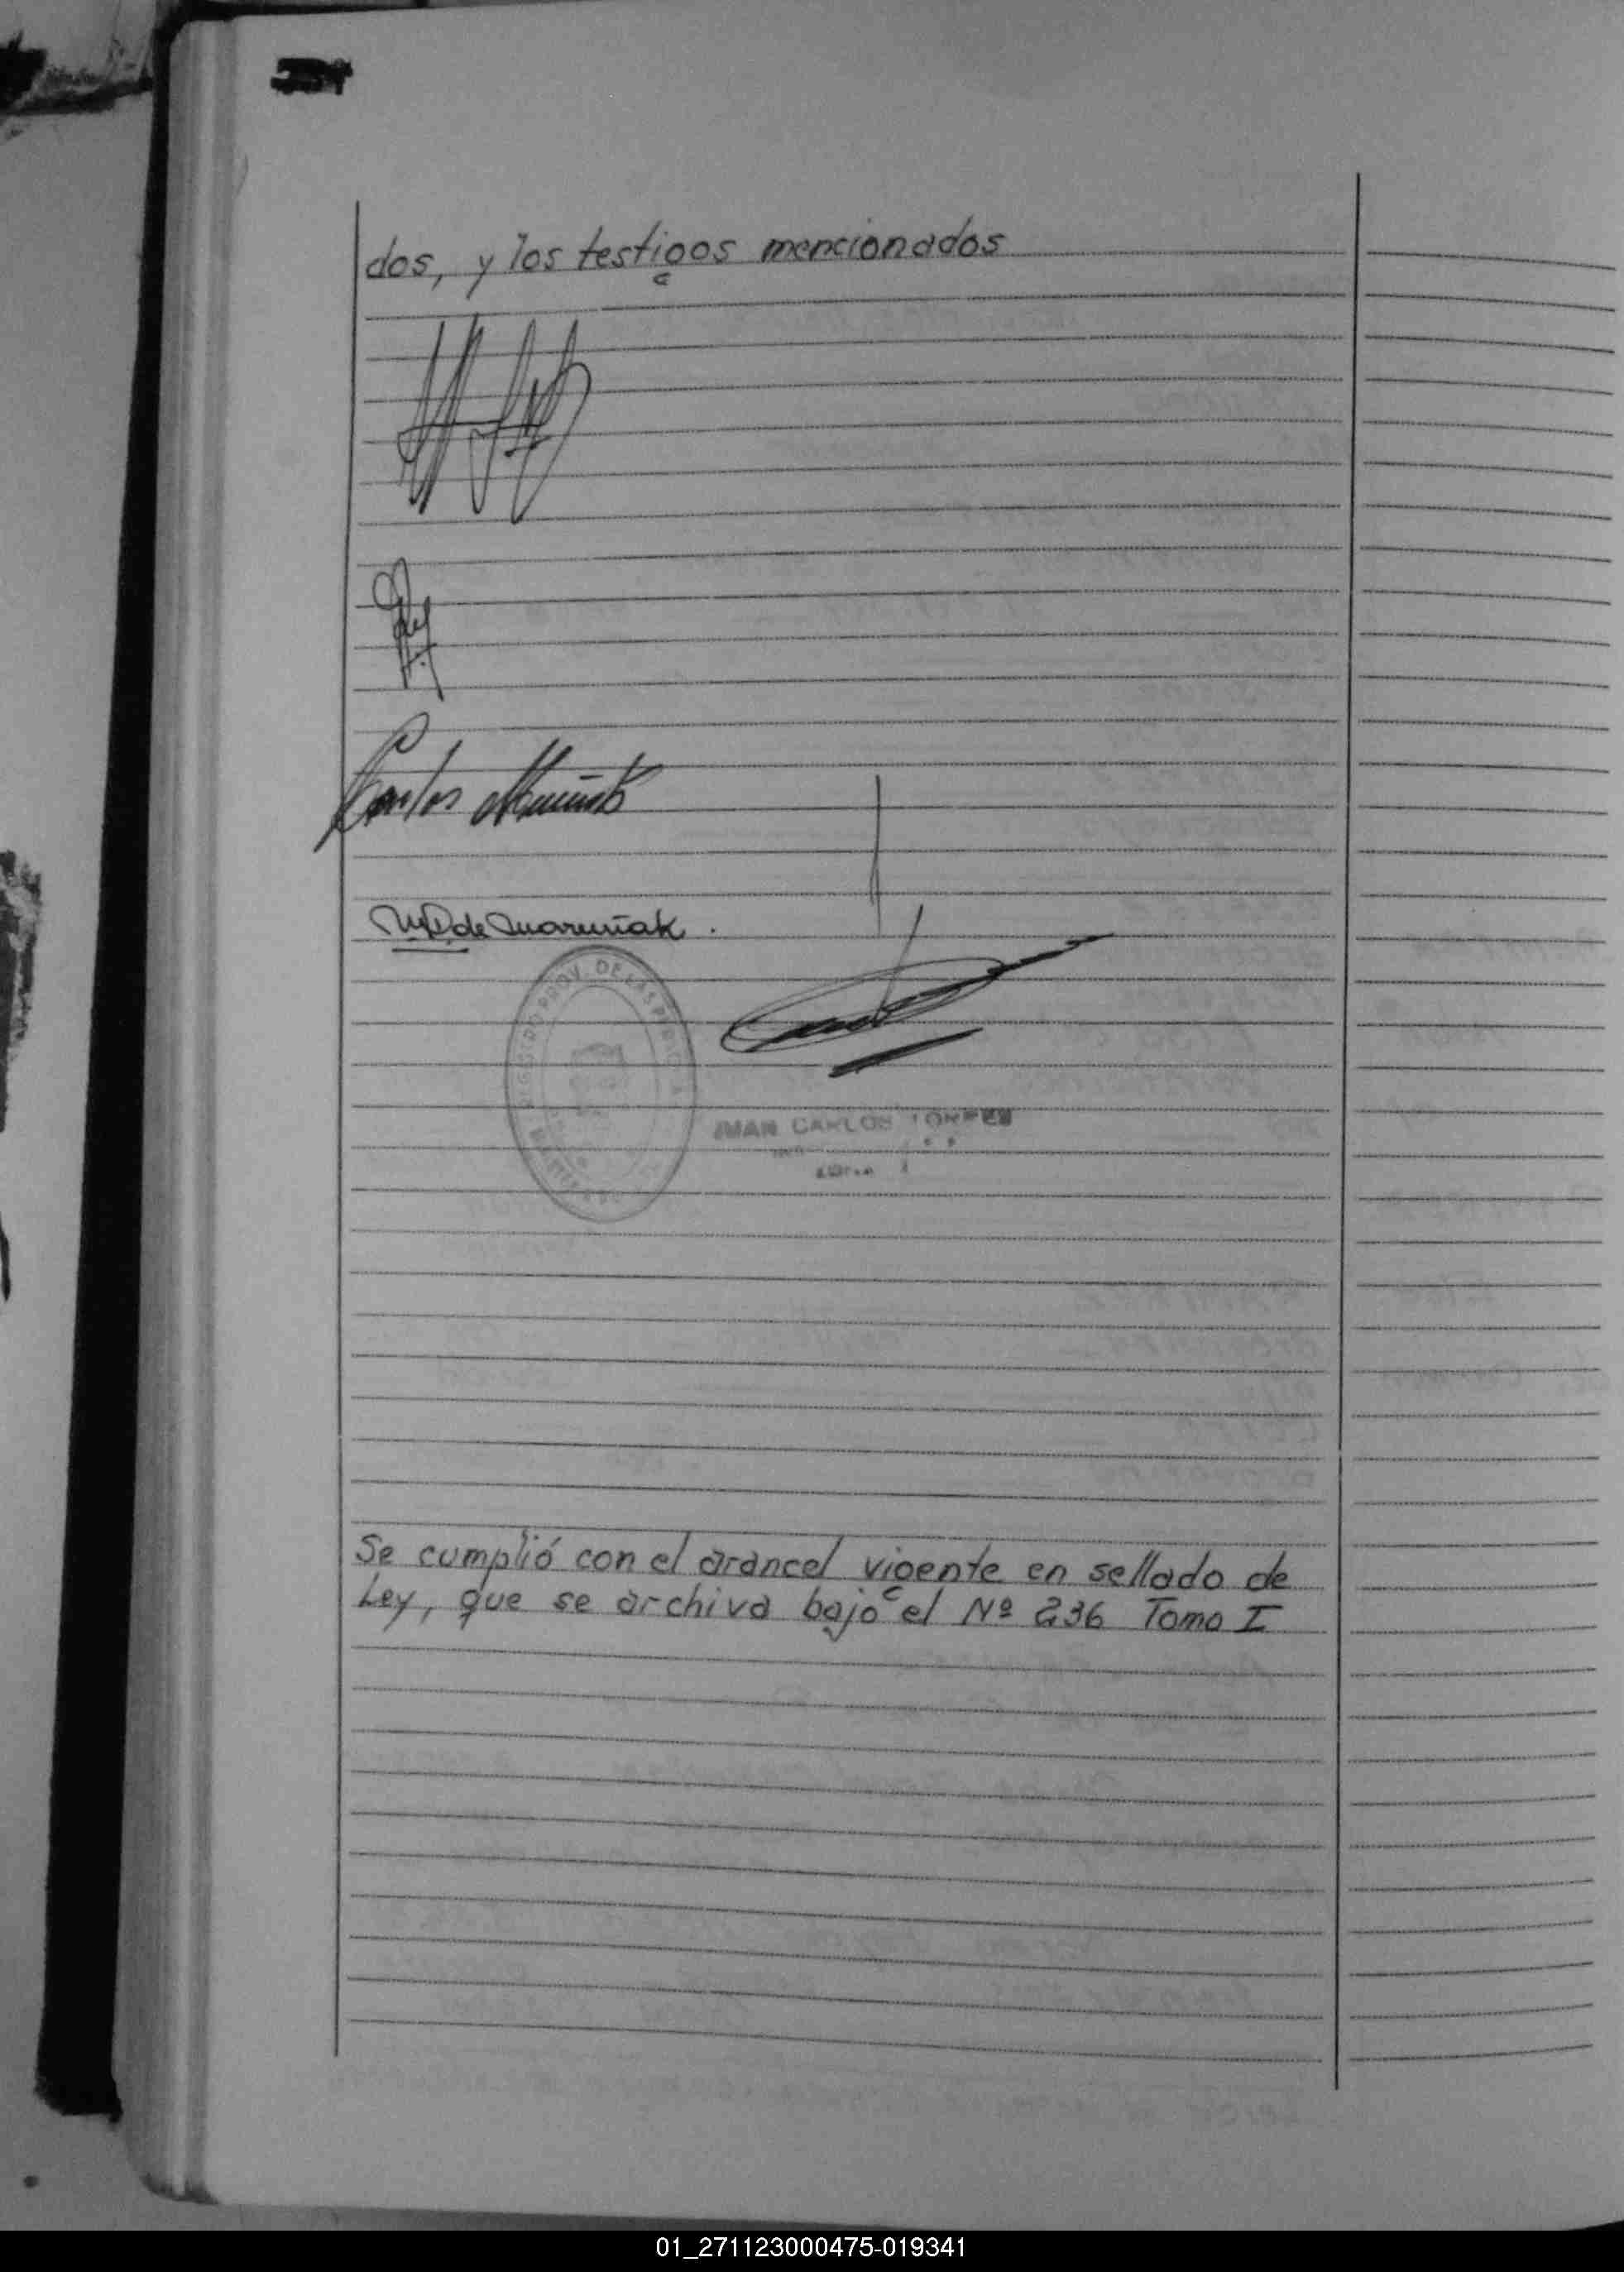 dos, y los testigos mencionados
Carlos
de
REGISTRO PROV. DE LAS PERSONAS
JUAN CARLOS TORRES
Se cumplió con el arancel vigente en sellado de
Ley, que se archiva bajo el Nº 236 Tomo I
01_271123000475-019341